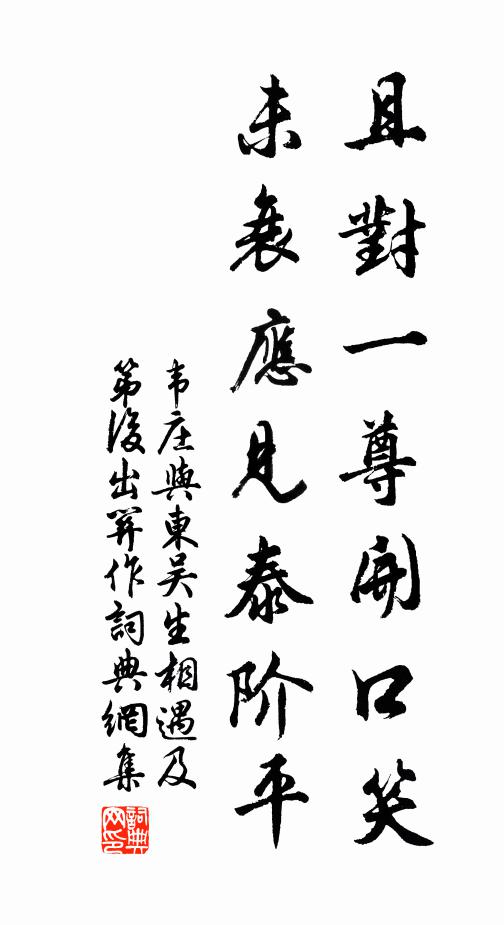 且對一尊開口笑
未衰應見泰阶平
韦庄與東吴生相遇及
第後出關作詞典網集
詞典网印